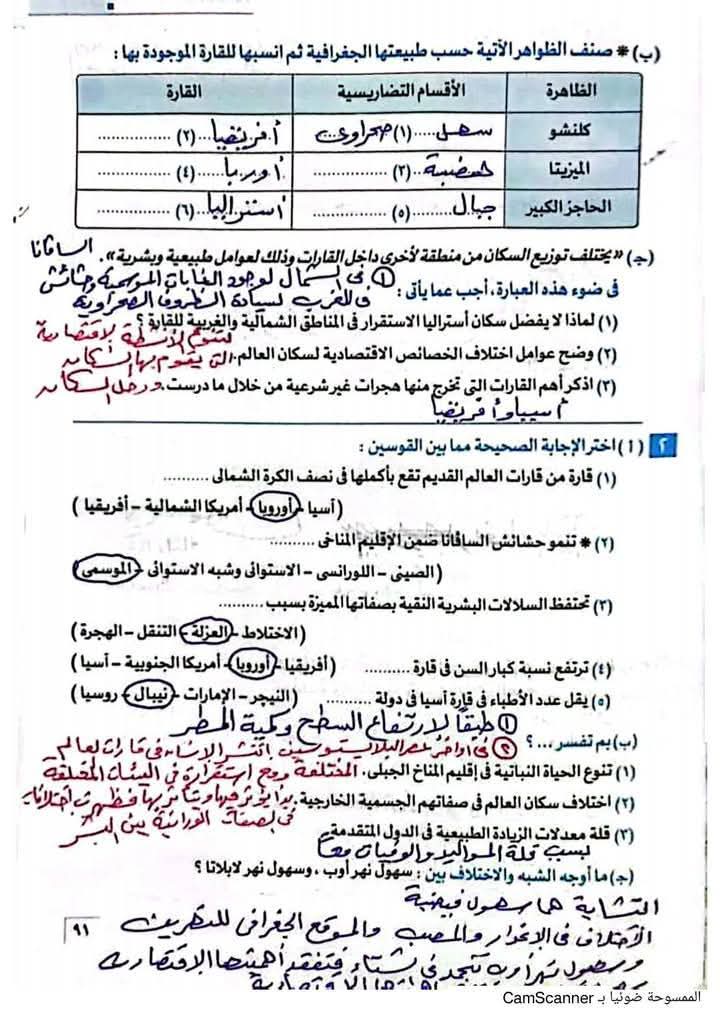 (ب) * صنف الظواهر الآتية حسب طبيعتها الجغرافية ثم انسبها للقارة الموجودة بها :
الظاهرة الأقسام التضاريسية القارة
كلنشو سهل.....(١) صحراوى... أفريقيا...(٢) ...............
الميزيتا هضبة...(٣) ............... أوربا......(٤) ...............
الحاجز الكبير جبال.........(٥) ............... استراليا...(٦) ...............
(جـ) «يختلف توزيع السكان من منطقة لأخرى داخل القارات وذلك لعوامل طبيعية وبشرية». السافانا
فى ضوء هذه العبارة، أجب عما يأتى : ① فى الشمال لوجود الغابات الموسمية وحشائش
فى الغرب لسيادة الظروف الصحراوية
(١) لماذا لا يفضل سكان أستراليا الاستقرار فى المناطق الشمالية والغربية للقارة ؟
لتنوع الأنشطة الاقتصادية
(٢) وضح عوامل اختلاف الخصائص الاقتصادية لسكان العالم. التى يقوم بها السكان
(٣) اذكر أهم القارات التى تخرج منها هجرات غير شرعية من خلال ما درست. ودخل السكان
أسيا وأفريقيا
٢ (أ) اختر الإجابة الصحيحة مما بين القوسين :
(١) قارة من قارات العالم القديم تقع بأكملها فى نصف الكرة الشمالى ..........
(آسيا - أوروبا - أمريكا الشمالية - أفريقيا )
(٢) * تنمو حشائش السافانا ضمن الإقليم المناخى ..........
(الصينى - اللورانسى - الاستوائى وشبه الاستوائى - الموسمى )
(٣) تحتفظ السلالات البشرية النقية بصفاتها المميزة بسبب ..........
(الاختلاط - العزلة - التنقل - الهجرة )
(٤) ترتفع نسبة كبار السن فى قارة .......... (أفريقيا - أوروبا - أمريكا الجنوبية - آسيا )
(٥) يقل عدد الأطباء فى قارة آسيا فى دولة .......... (النيجر - الإمارات - نيبال - روسيا )
① طبقاً لارتفاع السطح وكمية المطر
(ب) بم تفسر ... ؟ ② فى أواخر عصر البلايستوسين انتشر الإنسان فى قارات العالم
(١) تنوع الحياة النباتية فى إقليم المناخ الجبلى. المختلفة ومع استقراره فى البيئات المختلفة
(٢) اختلاف سكان العالم فى صفاتهم الجسمية الخارجية. بدأ يؤثر فيها ويتأثر بها فظهرت اختلافات
فى الصفات الوراثية بين البشر
(٣) قلة معدلات الزيادة الطبيعية فى الدول المتقدمة.
بسبب قلة المواليد والوفيات معاً
(جـ) ما أوجه الشبه والاختلاف بين : سهول نهر أوب ، وسهول نهر لابلاتا ؟
التشابة هما سهول فيضية
الاختلاف فى الانحدار والمصب والموقع الجغرافى للنهرين
وسهول نهر أوب تتجمد فى شتاء فتفقد أهميتها الاقتصادية
٩١
الممسوحة ضوئيا بـ CamScanner